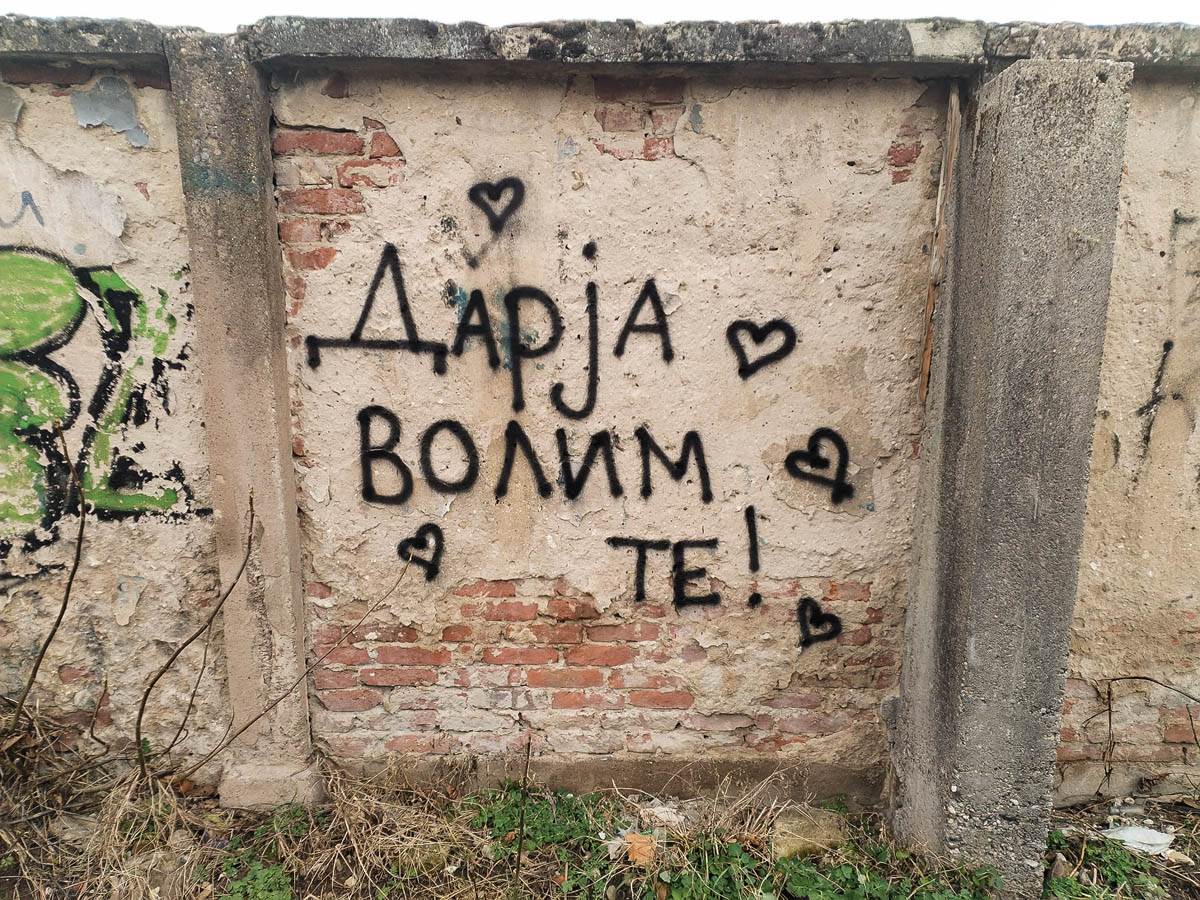 Дарја
волим
те!